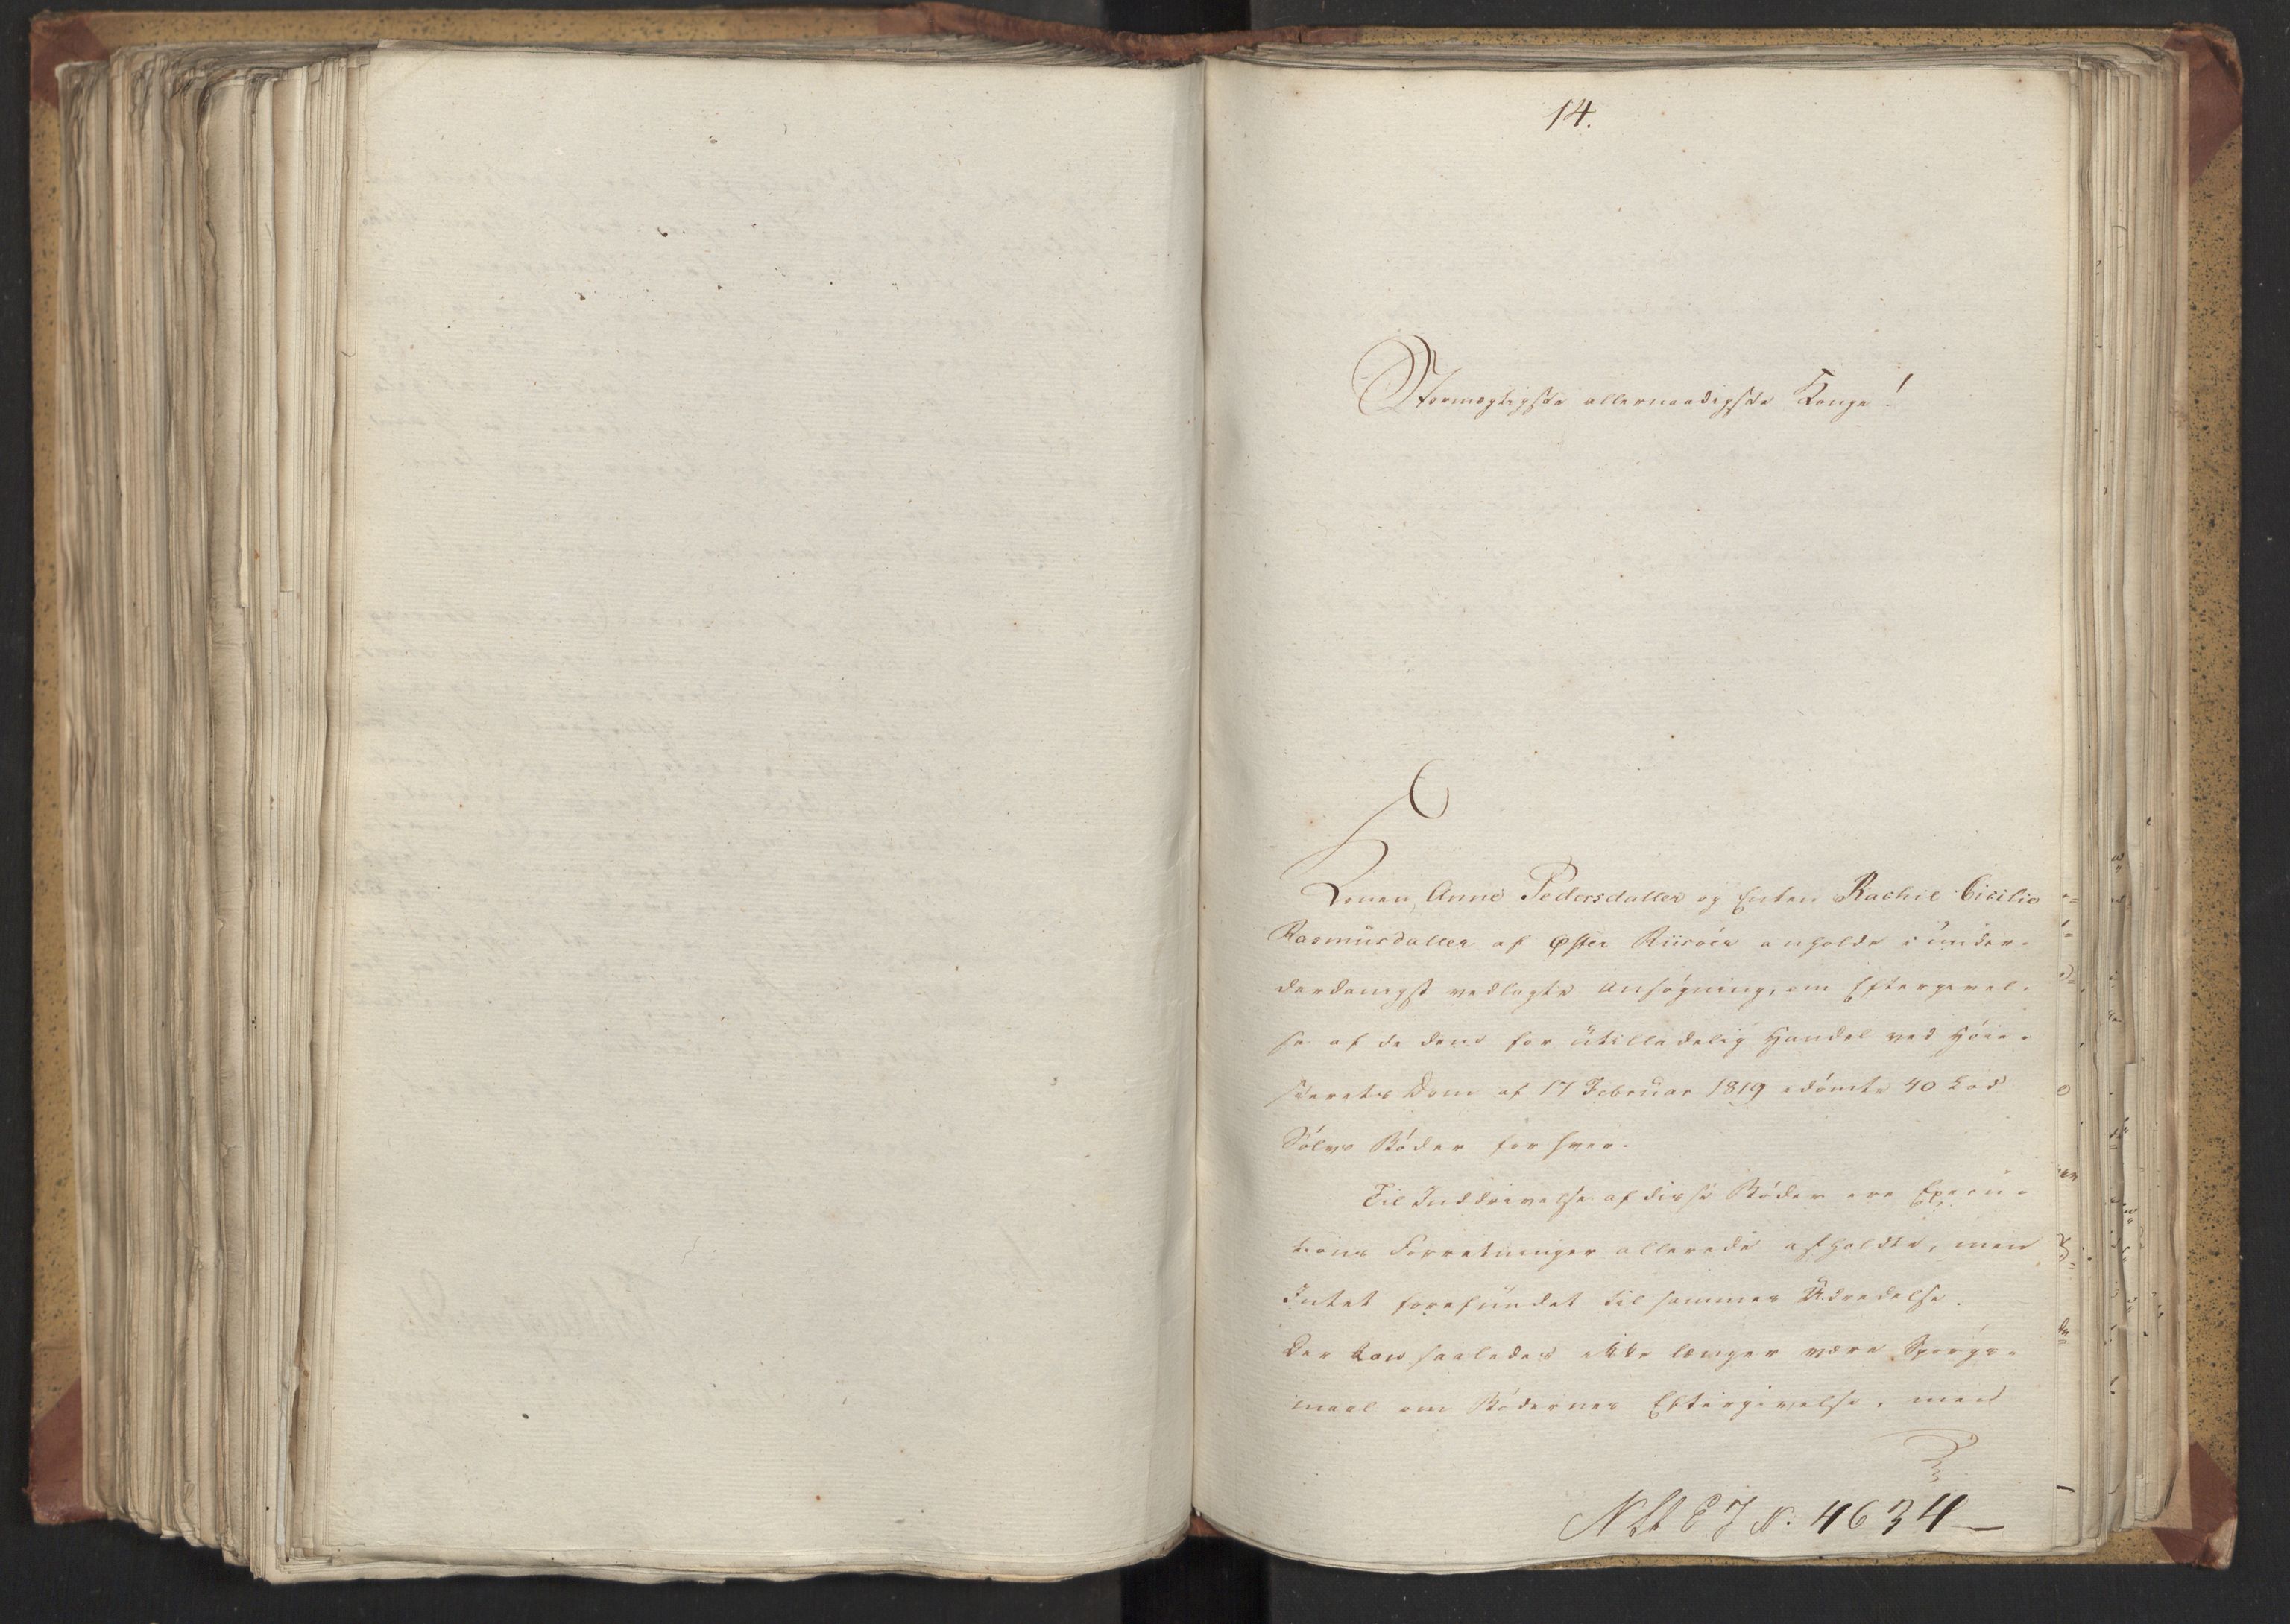 14.
Stormægtigste allernaadigste Konge!
Konen Anne Pedersdatter og Enken Rachil Cicilie
Rasmüsdatter af Øster Riisöer anholde i ünder-
derdanigst vedlagte Ansögning, om Eftergivel-
se af de dem for ütilladelig Handel ved Höie-
sterets Dom af 17 Februar 1819 idömte 40 Lod
Sölvs Böder for hver.
Til Inddrivelse af disse Böder ere Execü-
tions Forretninger allerede afholdte, men
Intet forefündet til sammes Udredelse.
Der kan saaledes ikke længer være Spörgs-
maal om Bödernes Eftergivelse, men
NSt E J N: 4634